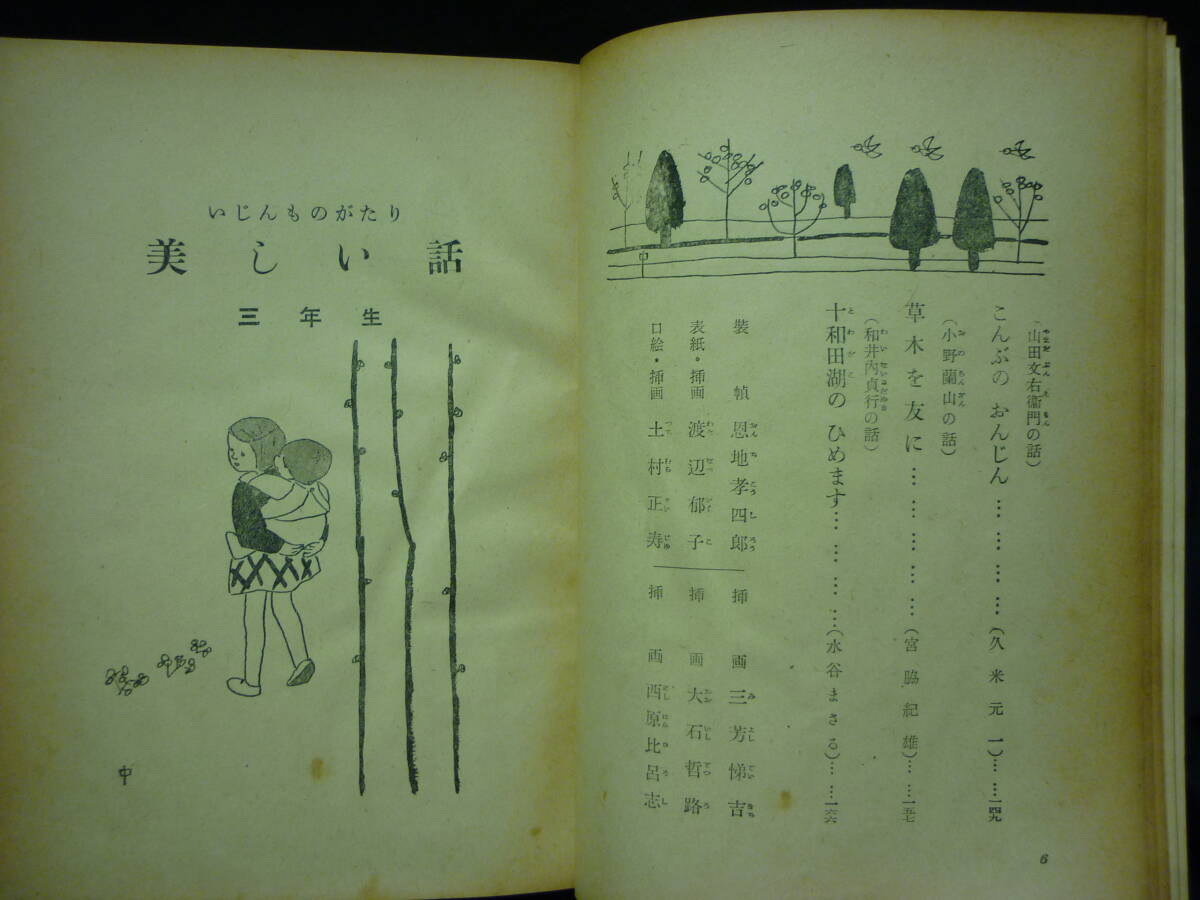 山田文右衞門の話)
こんぶの おんじん…………(久米元一)……一四九
(小野蘭山の話)
草木を友に………………(宮脇紀雄)……一五七
(和井内貞行の話)
十和田湖の ひめます…………(水谷まさる)……一六六
装幀 恩地孝四郎
表紙・挿画 渡辺郁子
口絵・挿画 土村正寿
挿画 三芳悌吉
挿画 大石哲路
挿画 西原比呂志
6
いじんものがたり
美しい話
三年生
中